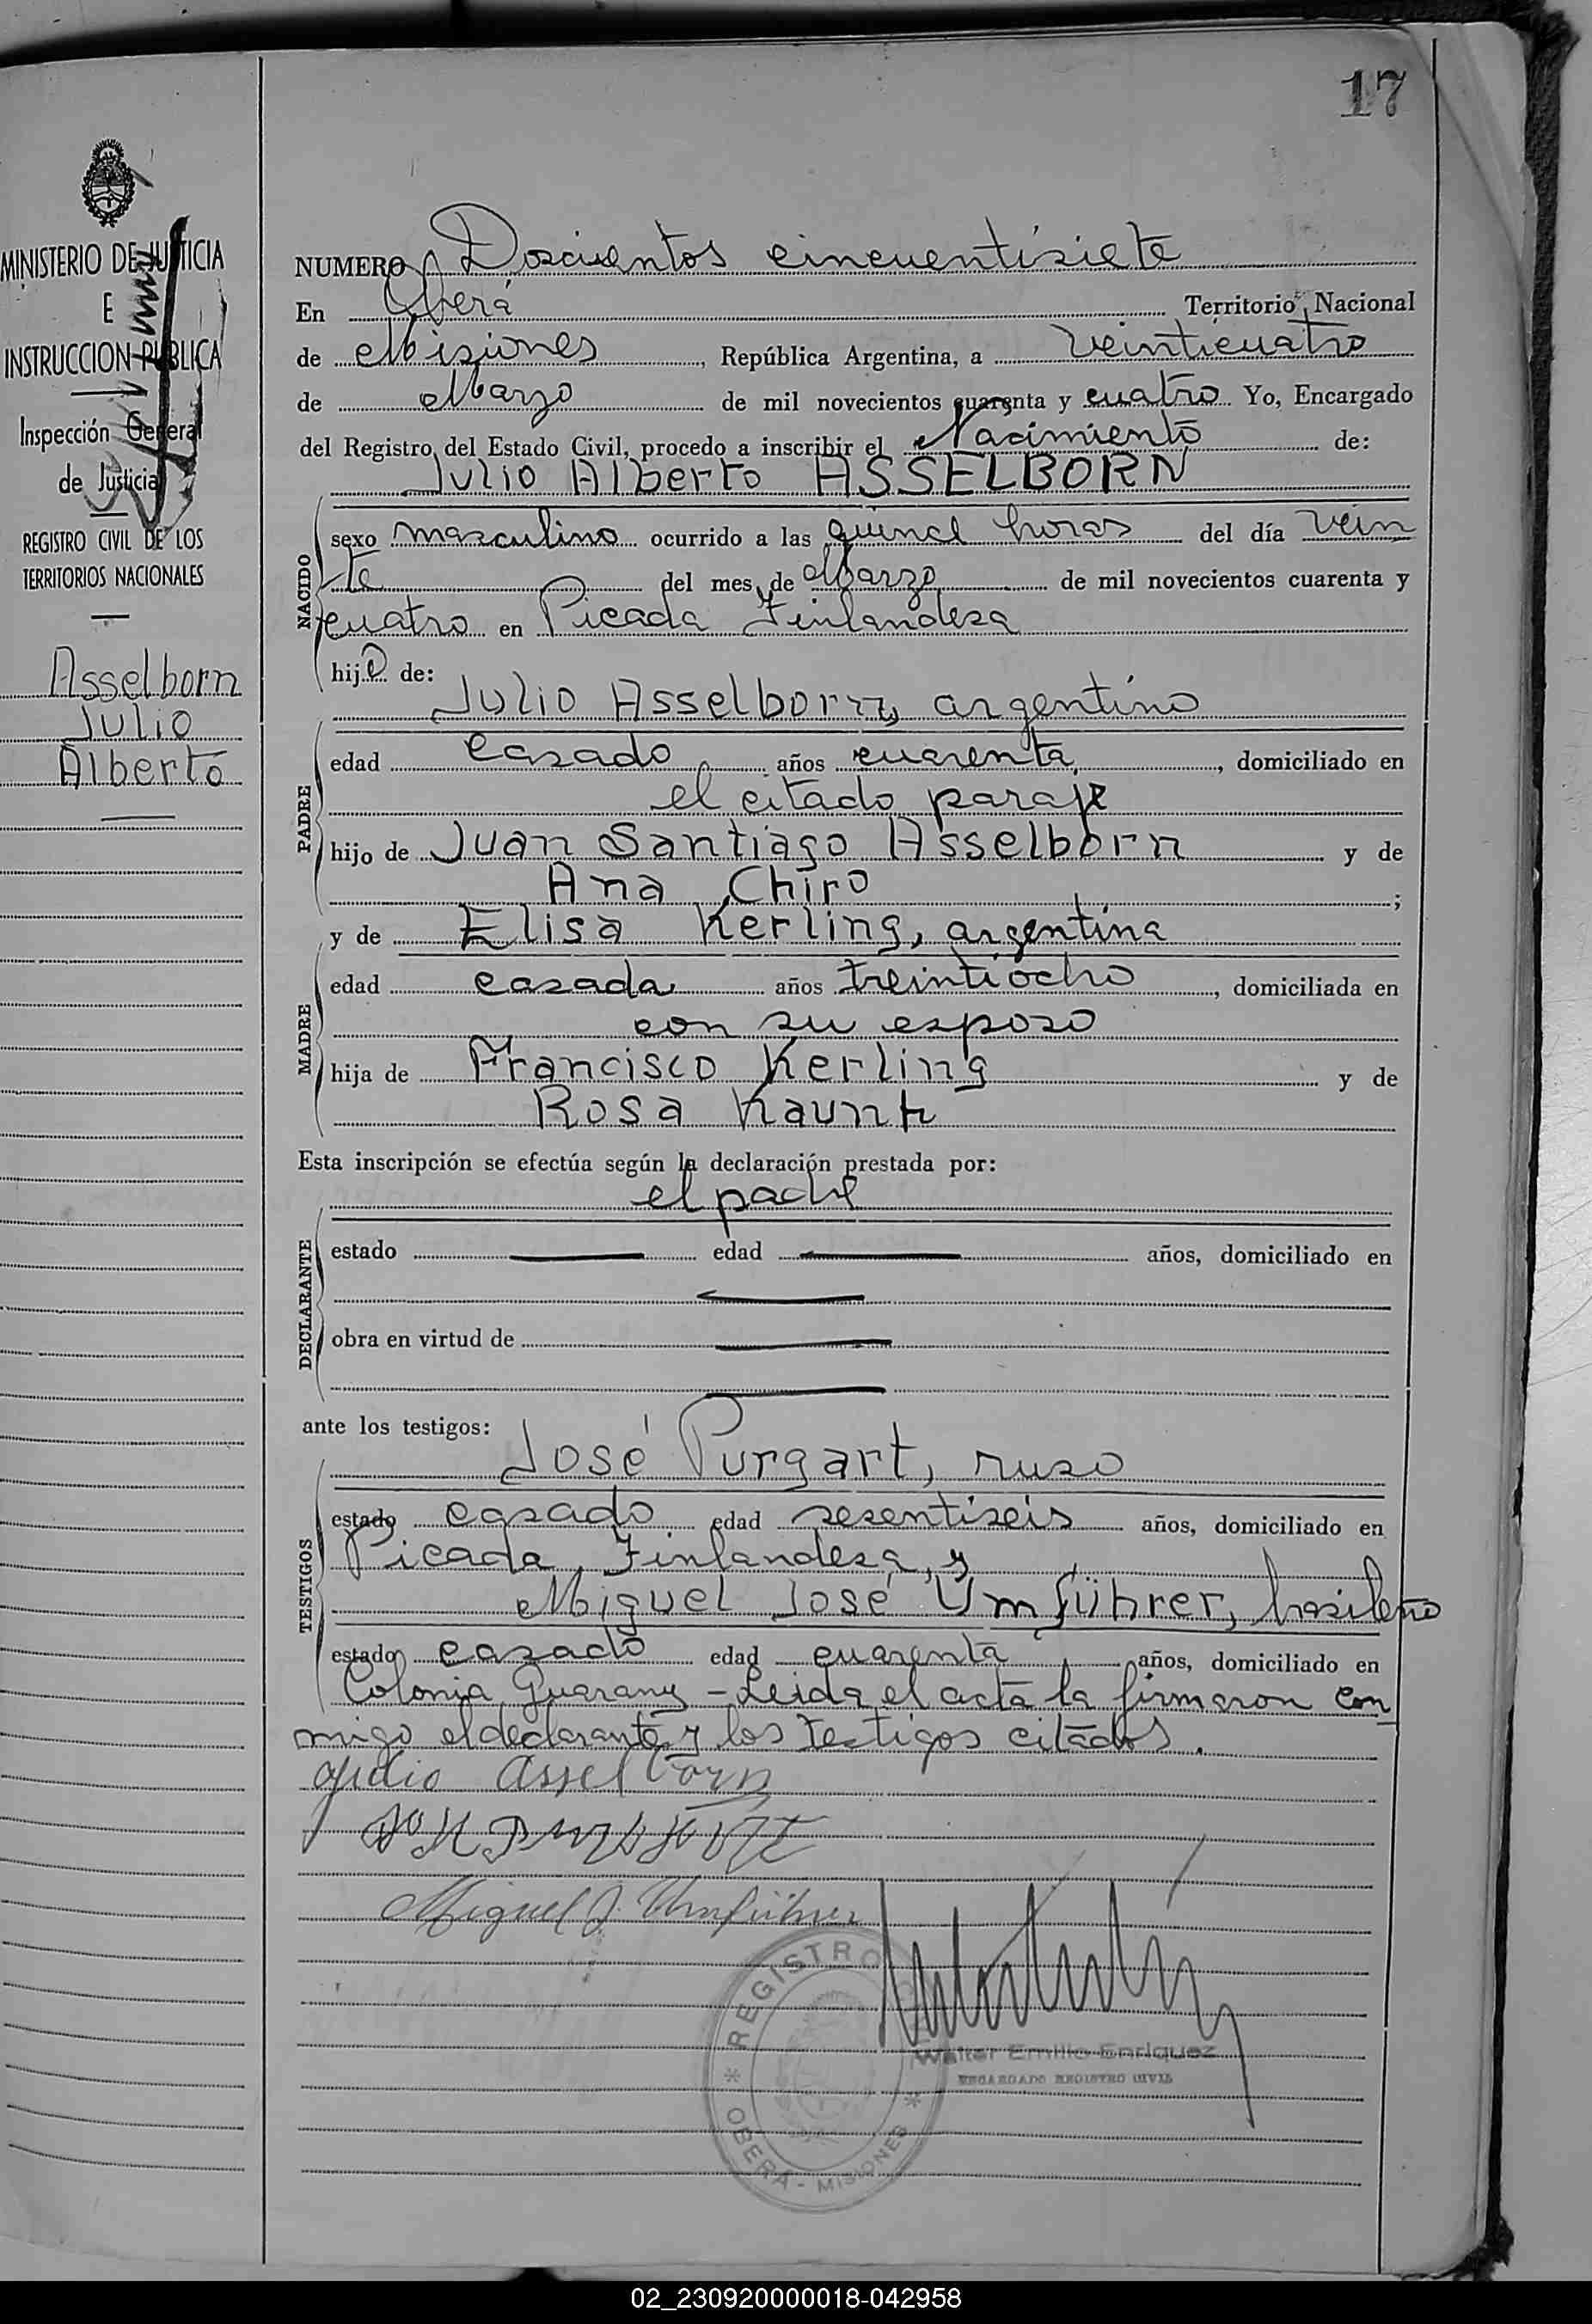 17
MINISTERIO DE JUSTICIA
E
INSTRUCCION PUBLICA
Inspección General
de Justicia
REGISTRO CIVIL DE LOS
TERRITORIOS NACIONALES
Asselborn
Julio
Alberto
NUMERO Doscientos cincuentisiete
En Oberá Territorio Nacional
de Misiones, República Argentina, a veinticuatro
de Marzo de mil novecientos cuarenta y cuatro Yo, Encargado
del Registro del Estado Civil, procedo a inscribir el Nacimiento de:
Julio Alberto ASSELBORN
NACIDO
sexo masculino ocurrido a las quince horas del día vein
te del mes de Marzo de mil novecientos cuarenta y
cuatro en Picada Finlandesa
hijo de:
Julio Asselborn, argentino
PADRE
edad casado años cuarenta, domiciliado en
el citado paraje
hijo de Juan Santiago Asselborn y de
Ana Chiro;
y de Elisa Kerling, argentina
MADRE
edad casada años treintiocho, domiciliada en
con su esposo
hija de Francisco Kerling y de
Rosa
Esta inscripción se efectúa según la declaración prestada por:
el padre
DECLARANTE
estado edad años, domiciliado en
obra en virtud de
ante los testigos:
José Purgart, ruso
TESTIGOS
estado casado edad sesentiseis años, domiciliado en
Picada Finlandesa, y
Miguel José Umführer, brasileño
estado casado edad cuarenta años, domiciliado en
Colonia Guarany - Leida el acta la firmaron con
migo el declarante y los testigos citados.
Julio Asselborn
Miguel J. Umführer
REGISTRO
OBERÁ - MISIONES
Walter Emilio Enriquez
ENCARGADO REGISTRO CIVIL
02_230920000018-042958